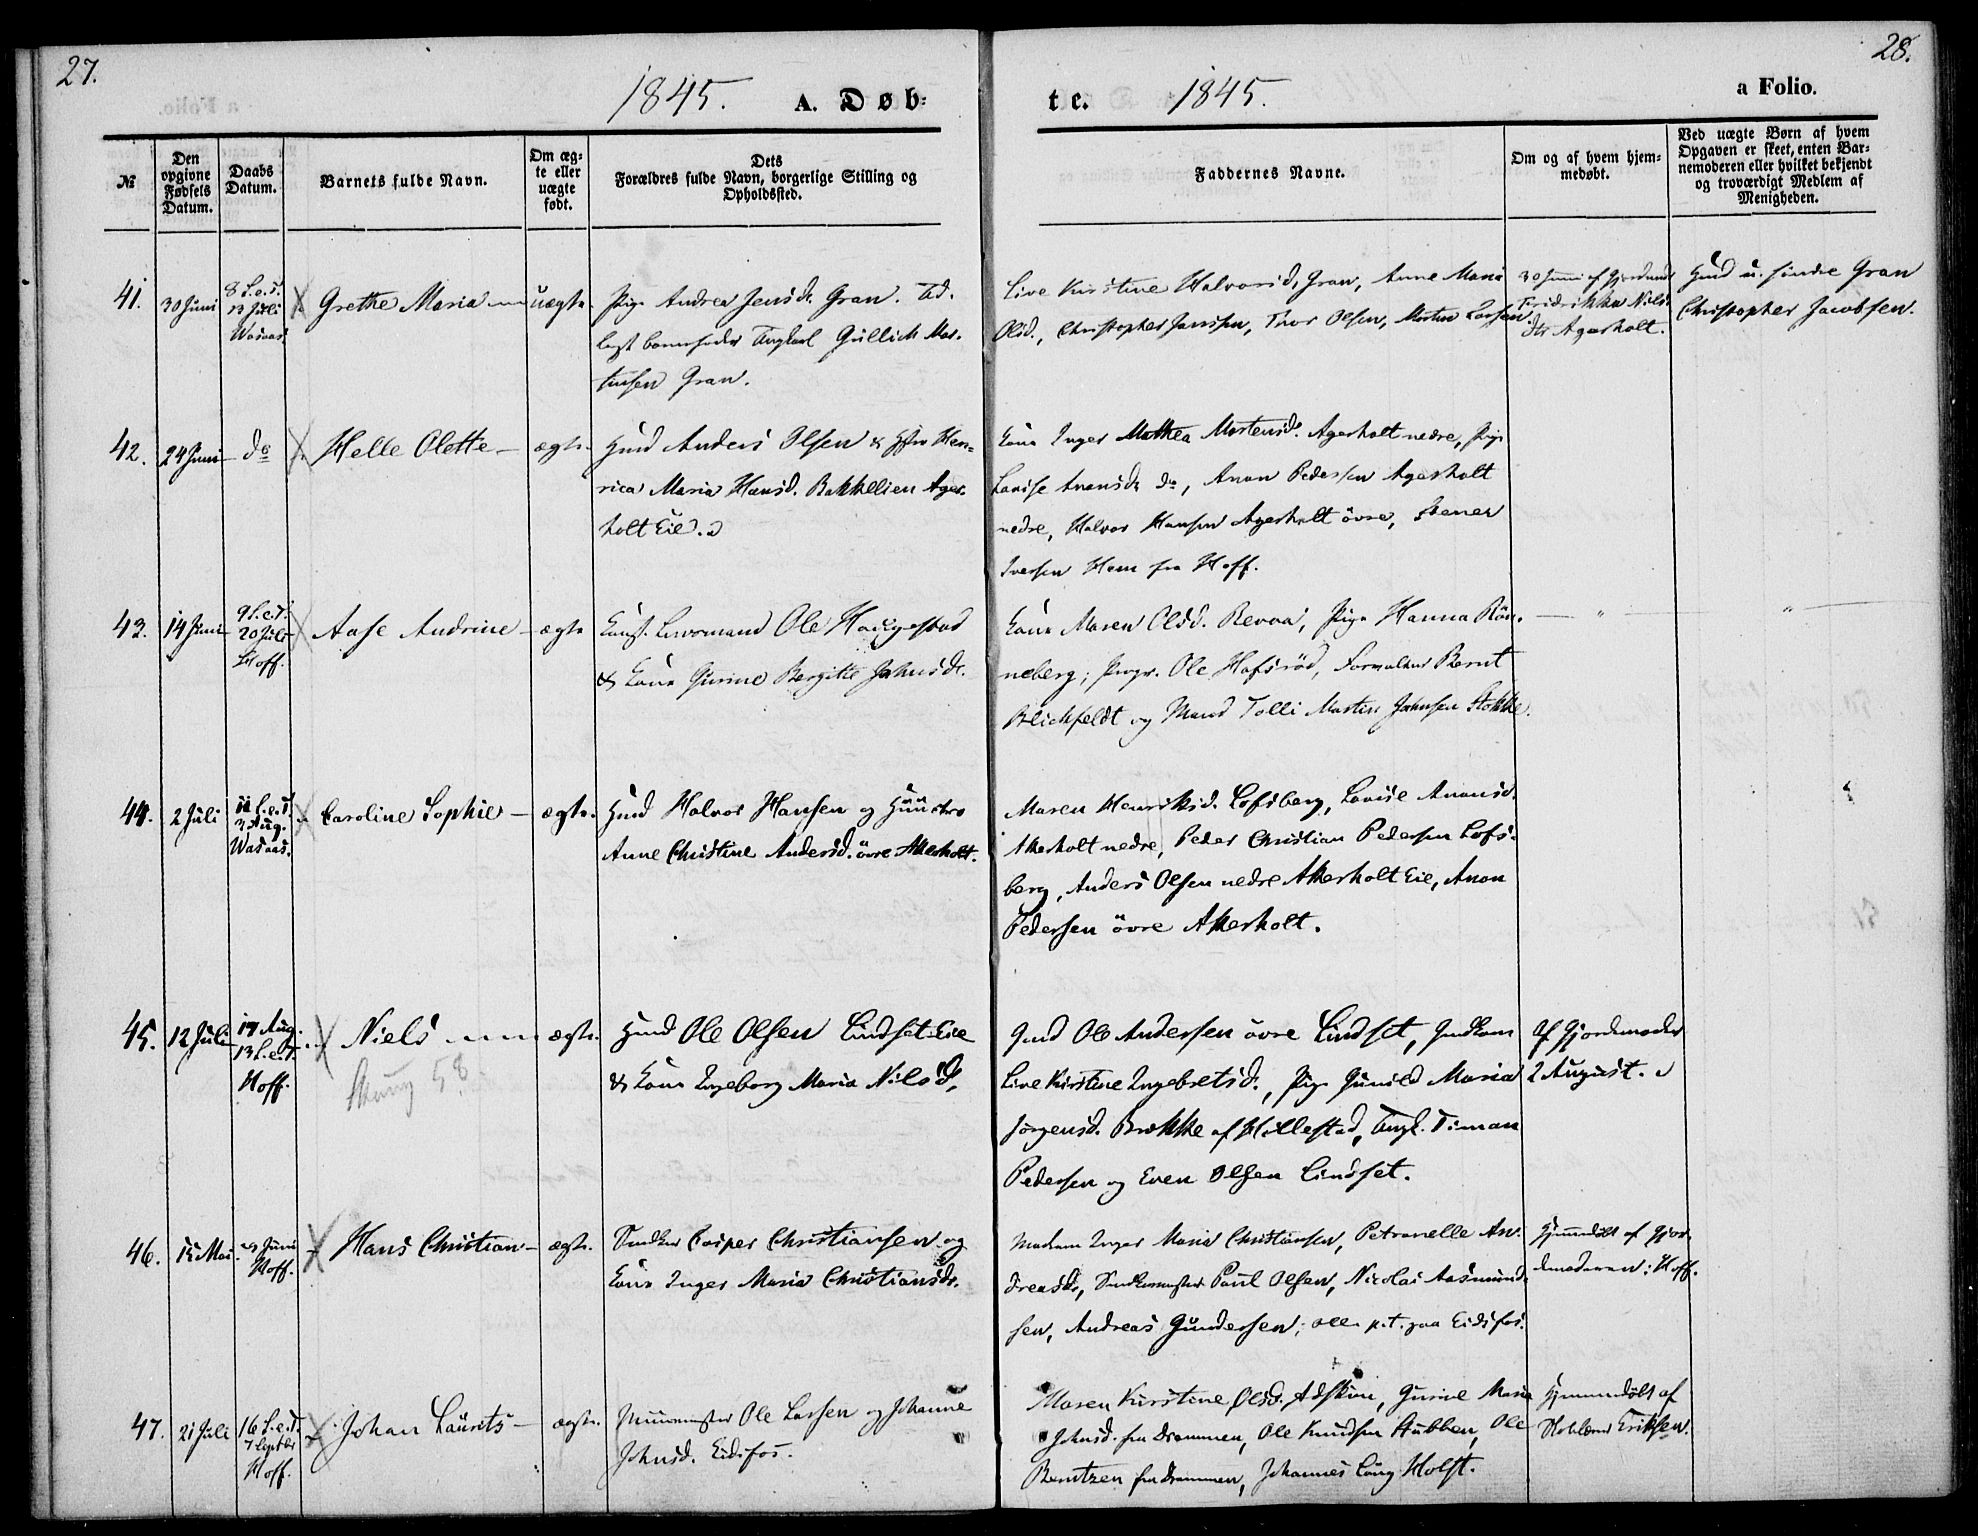 27.
28.
1845. A. Døb:
te. 1845.
a Folio.
№
Den opgivne Fødsels Datum.
Daabs Datum.
Barnets fulde Navn.
Om æg: te eller uægte født.
Dets Forældres fulde Navn, borgerlige Stilling og Opholdssted.
Faddernes Navne.
Om og af hvem hjem: medøbt.
Ved uægte Børn af hvem Opgaven er skeet, enten Bar: nemoderen eller hvilket bekjendt og troværdigt Medlem af Menigheden.
41. 30 Juni
8 S.e.T.
13 Juli
Wasaas.
Grethe Maria
uægte.
Pige Andrea Jensd. Gran. Ud.
lagt barnefader Ungkarl Gullich Mor.
tensen Gran.
Live Kirstine Halvorsd, Gran, Anne Maria
Olsd., Christopher Jansen, Thor Olsen, Morten Larsen
30 Juni af
Fridrikka Niels
dtr Agerholt.
Hmd u. søndre Gran
Christopher Jacobsen.
42. 24 Juni
do
Helle Olette
ægte.
Hmd Anders Olsen & Hstr Hen=
rica Maria Hansd. Bakkelien Ager
holt Eie.
Kone Inger Mathea Mortensd. Agerholt nedre, Pige
Lovise Anansd. do, Anon Pedersen Agerholt
nedre, Halvor Hansen Agerholt övre, Stener
Iversen Hem fra Hoff.
43. 14 Juni
9 S.e.T.
20 Juli
Hoff.
Aase Andrine
ægte
Ole Helgestad
& Kone Gurine Bergitte Johnsd.
Kone Maren Olsd. Revaa, Pige Hanna Rön.
neberg, Ole Hafsröd, Bernt
Blichfeldt og Tolli Martin Johnsen Stokke.
44. 2 Juli
11 S.e.T.
3 Aug.
Wasaas.
Caroline Sophie
ægte.
Hmd Halvor Hansen og Hüüstro
Anne Christine Andersd. övre Akerholt.
Maren Henriksd. Lofsberg, Lovise Anonsd.
Akerholt nedre, Peder Christian Pedersen Lofs.
berg, Anders Olsen nedre Akerholt Eie, Anon
Pedersen övre Akerholt.
45. 12 Juli
17 Aug.
13 S.e.T.
Hoff.
Niels
58
ægte.
Hmd Ole Olsen Lindset Eie
& Kone Ingeborg Maria Nilsd.
Gmd Ole Andersen övre Lindset,
Live Kirstine Ingebretsd., Pige Gunild Maria
Jörgensd. Brekke af Hillestad, Ungk. Timan
Pedersen og Even Olsen Lindset.
Af Gjordemoder
2 August.
46. 15 Mai
29 Juni
Hoff.
Hans Christian
ægte.
Casper Christiansen og
Kone Inger Maria Christiansdr.
Madam Inger Maria Christiansen, Petronelle An.
dreasdr, Paul Olsen, Nicolai Aasmund
sen, Andreas Gundersen; alle p.t. paa Eidsfos.
Hjemmedöbt af Gjor.
demoderen: Hoff.
47. 21 Juli
16 S.e.T.
7 Septbr
Hoff.
Johan Laurits
ægte.
Muurmester Ole Larsen og Johanne
Johnsd. Eidsfos.
Maren Kirstine Olsd. Adskim, Gurine Maria
Johnsd. fra Drammen, Ole Knudsen Stubben, Ole
Berntzen fra Drammen, Johannes Lang Holst.
Hjemmedöbt af
Eriksen.